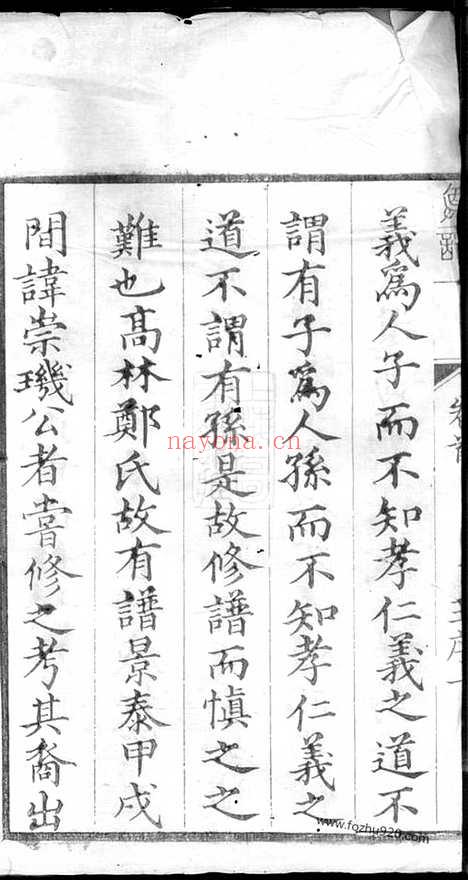 義爲人子而不知孝仁義之道不
謂有子爲人孫而不知孝仁義之
道不謂有孫是故修譜而愼之之
難也髙林鄭氏故有譜景泰甲戌
間諱崇璣公者嘗修之考其裔出
卷首
nayona.cn
www.fozhu920.com